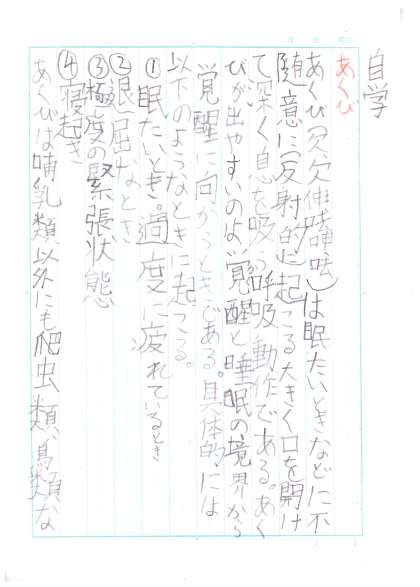 自学
あくび
あくび(欠伸、欠、呿)は眠たいときなどに不
随意に(反射的に)起こる大きく口を開け
て深く息を吸う呼吸動作である。あく
びが出やすいのは、覚醒と睡眠の境界から
覚醒に向かうときである。具体的には
以下のようなときに起こる。
①眠たいとき。過度に疲れているとき
②退屈なとき
③極度の緊張状態
④寝起き
あくびは哺乳類以外にも爬虫類、鳥類な